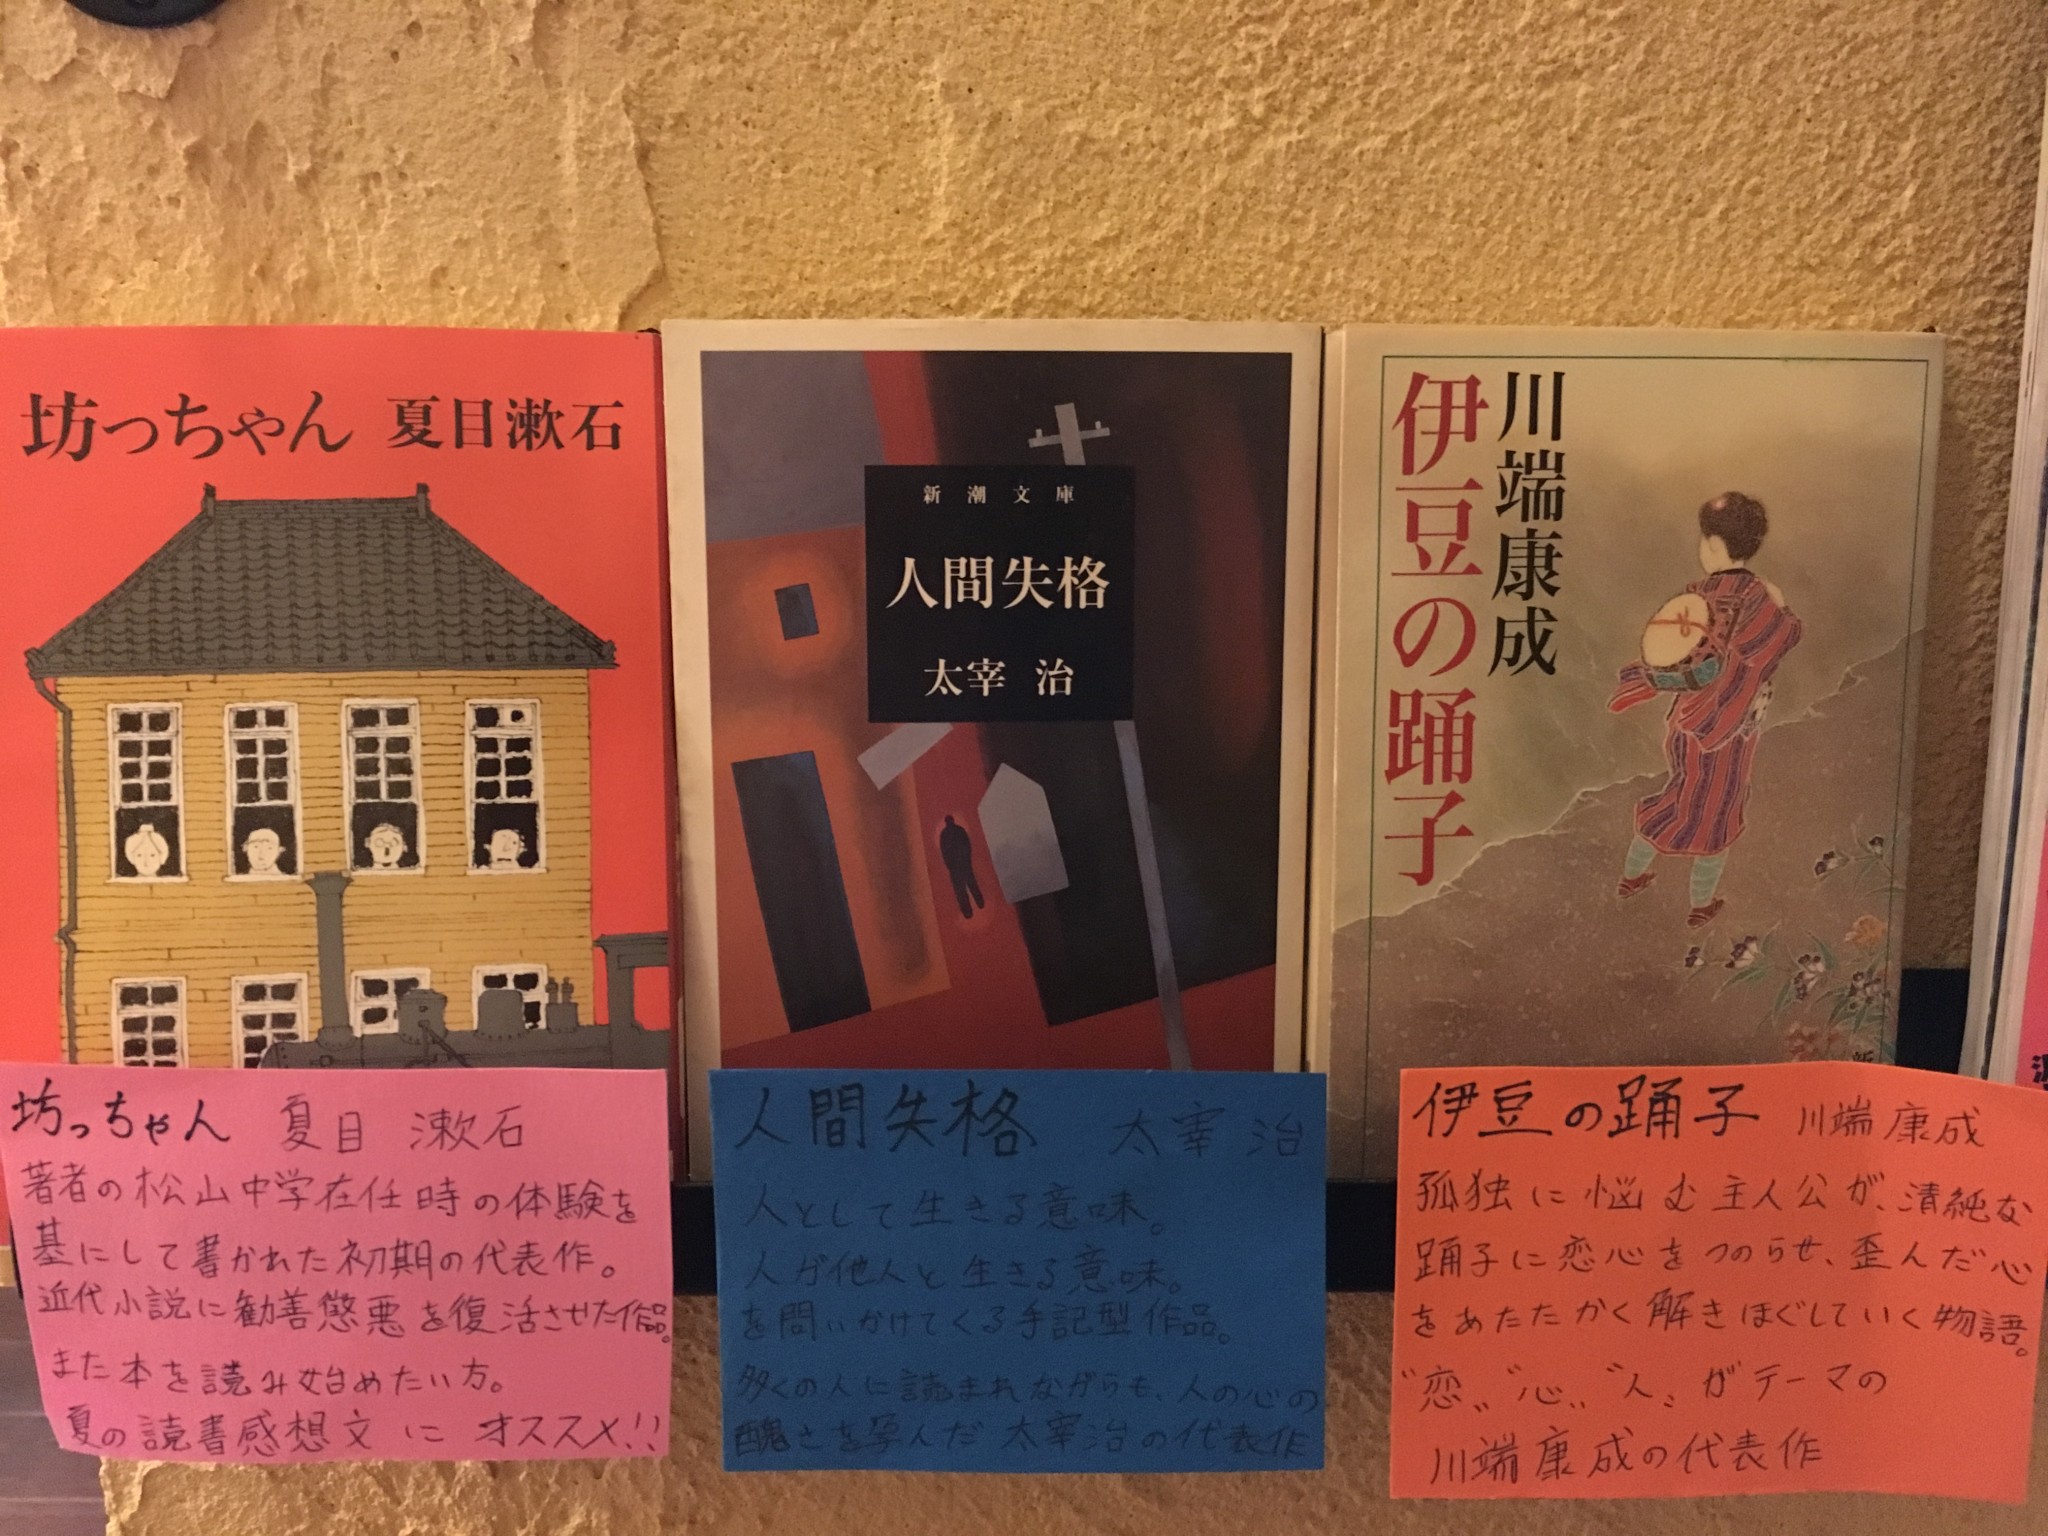 坊っちゃん 夏目漱石
新潮文庫
人間失格
太宰 治
川端康成
伊豆の踊子
坊っちゃん 夏目 漱石
著者の松山中学在任時の体験を
基にして書かれた初期の代表作。
近代小説に勧善懲悪を復活させた作品。
また本を読み始めたい方。
夏の読書感想文に オススメ!!
人間失格 太宰 治
人として生きる意味。
人が他人と生きる意味。
を問いかけてくる手記型作品。
多くの人に読まれながらも、人の心の
醜さを孕んだ 太宰治の代表作
伊豆の踊子 川端 康成
孤独に悩む主人公が、清純な
踊子に恋心をつのらせ、歪んだ心
をあたたかく解きほぐしていく物語。
"恋""心""人"がテーマの
川端康成の代表作